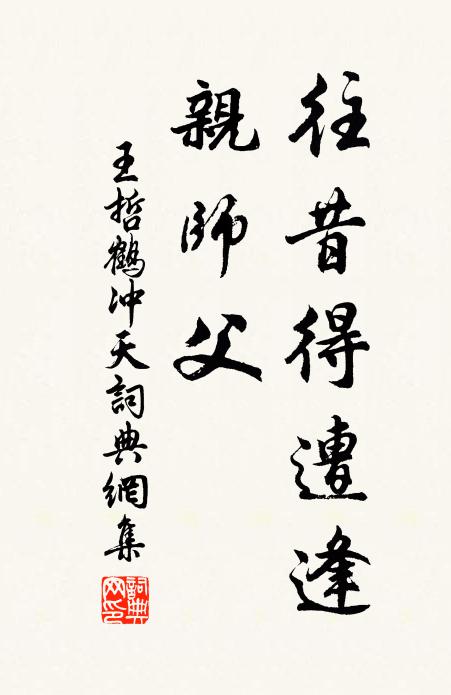 往昔得遭逢
親師父
王哲鶴沖天詞典網集
詞典网印